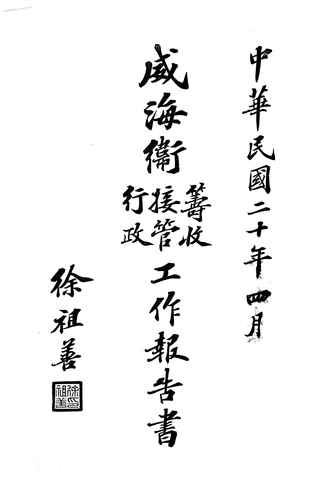 中華民國二十年四月
威海衛籌收接管行政工作報告書
徐祖善
徐祖善印